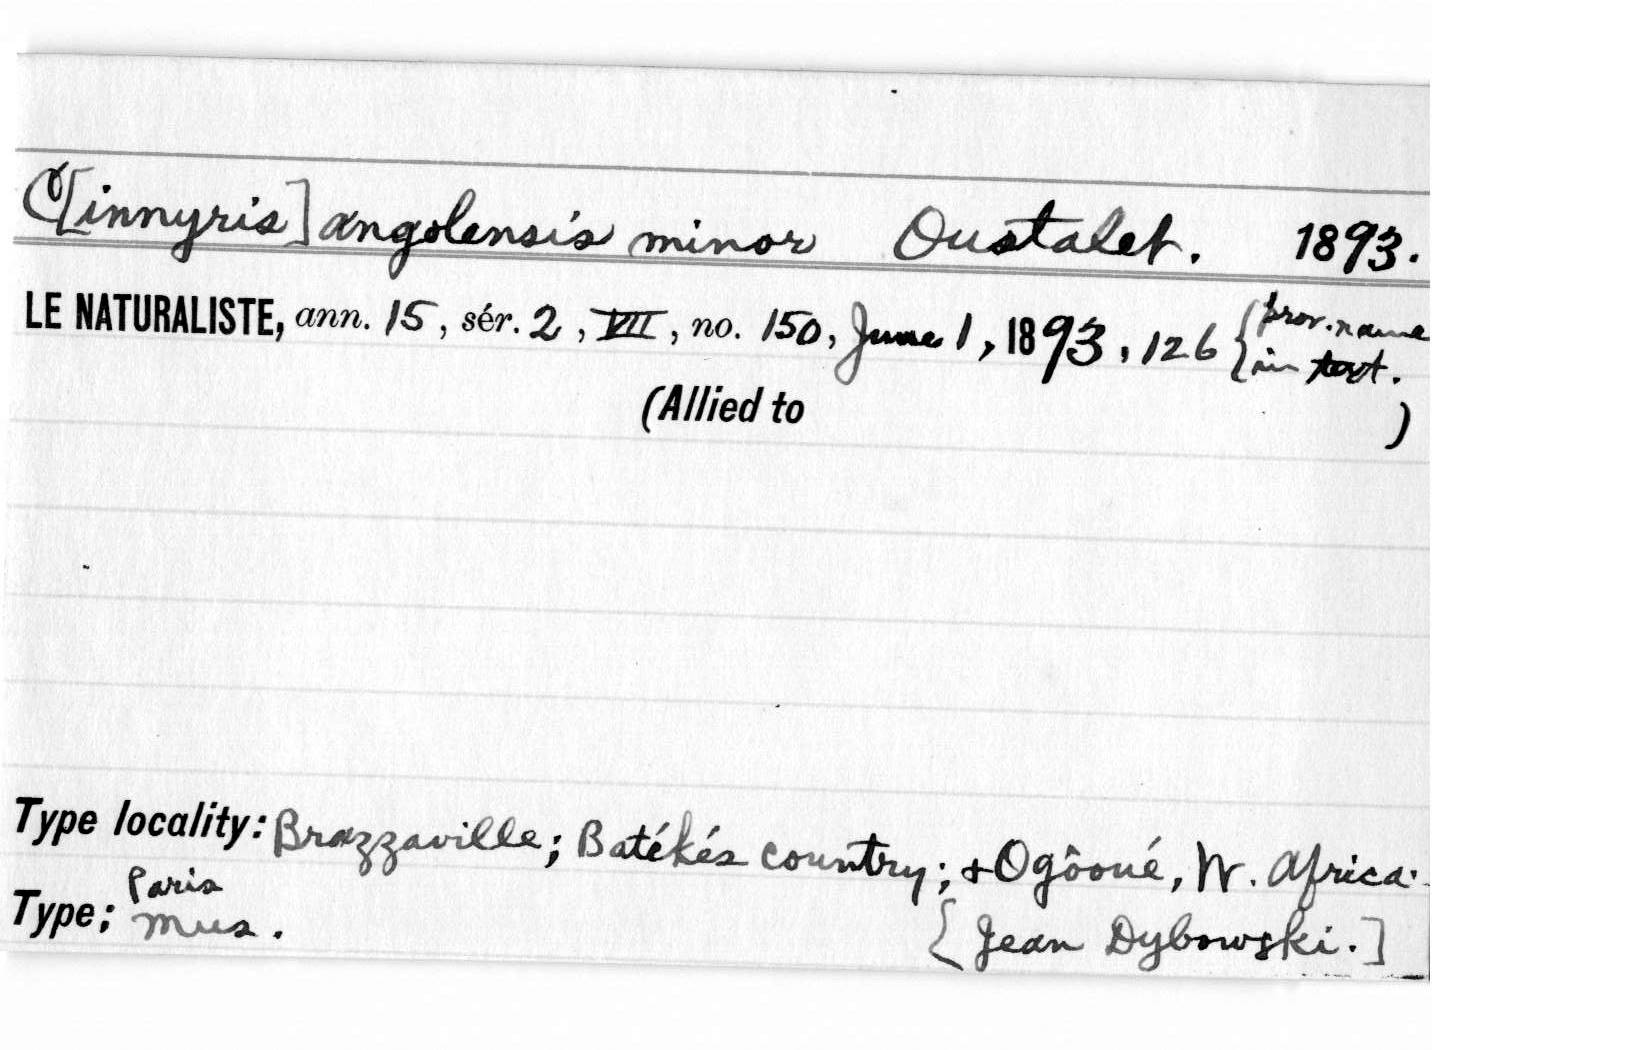 C[innyris] angolensis minor Oustalet. 1893.
LE NATURALISTE, ann. 15, sér. 2, VII, no. 150, June 1, 1893, 126 {prov. name
in text.
(Allied to )
Type locality: Brazzaville; Batékés country; + Ogôoué, W. Africa.
Type; Paris
Mus. [Jean Dybowski.]